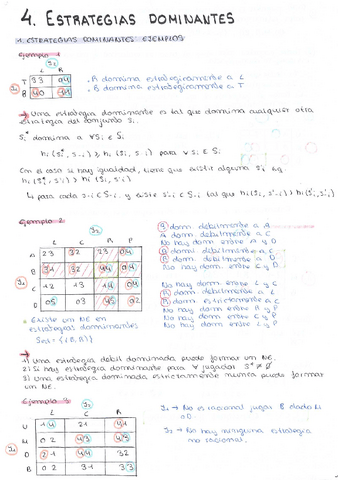 4. ESTRATEGIAS DOMINANTES
1. ESTRATEGIAS DOMINANTES: EJEMPLOS
Ejemplo 1
J2
L R
J1 T 3 3 0 4
B 4 0
. R domina estratégicamente a L
. B domina estratégicamente a T
→ Una estrategia dominante es tal que domina cualquier otra
estrategia del conjunto Si.
Si* domina a ∀ Si ∈ Si
hi (Si*, S-i) ≥ hi (Si, S-i) para ∀ Si ∈ Si
Con el caso si hay igualdad, tiene que existir alguna S-i
↳ para cada S-i ∈ S-i y existe S-i ∈ S-i tal que
Ejemplo 2
J2
L C R P
A 2 3 3 2 2 3 0 4
B 3 1 3 2 4 4 0 4
C 1 2 1 3 1 4 0 4
D 0 5 0 3 4 5 0 2
J1
B dom. debilmente a A
A dom. debilmente a C
No hay dom entre A y D
B dom. debilmente a C
B dom. debilmente a D
No hay dom. entre C y D
No hay dom. entre L y C
R dom. debilmente a L
R dom. estrictamente a C
No hay dom entre R y P
No hay dom. entre C y P
No hay dom. entre L y P
Existe un NE en
estrategias dominantes
Sol = {(B, R)}
1) Una estrategia debil dominada puede formar un NE.
2) Si hay estrategia dominante para ∀ jugador S* ≠ ∅
3) Una estrategia dominada estrictamente nunca puede formar
un NE.
Ejemplo 3
J2
L C R
U 1 4 2 1 4 1
M 0 2 4 3 4 3
D 2 1 4 4 3 2
B 0 2 3 1 3 3
J1
J1 → No es racional jugar B dada M
o D.
J2 → No hay ninguna estrategia
no racional.